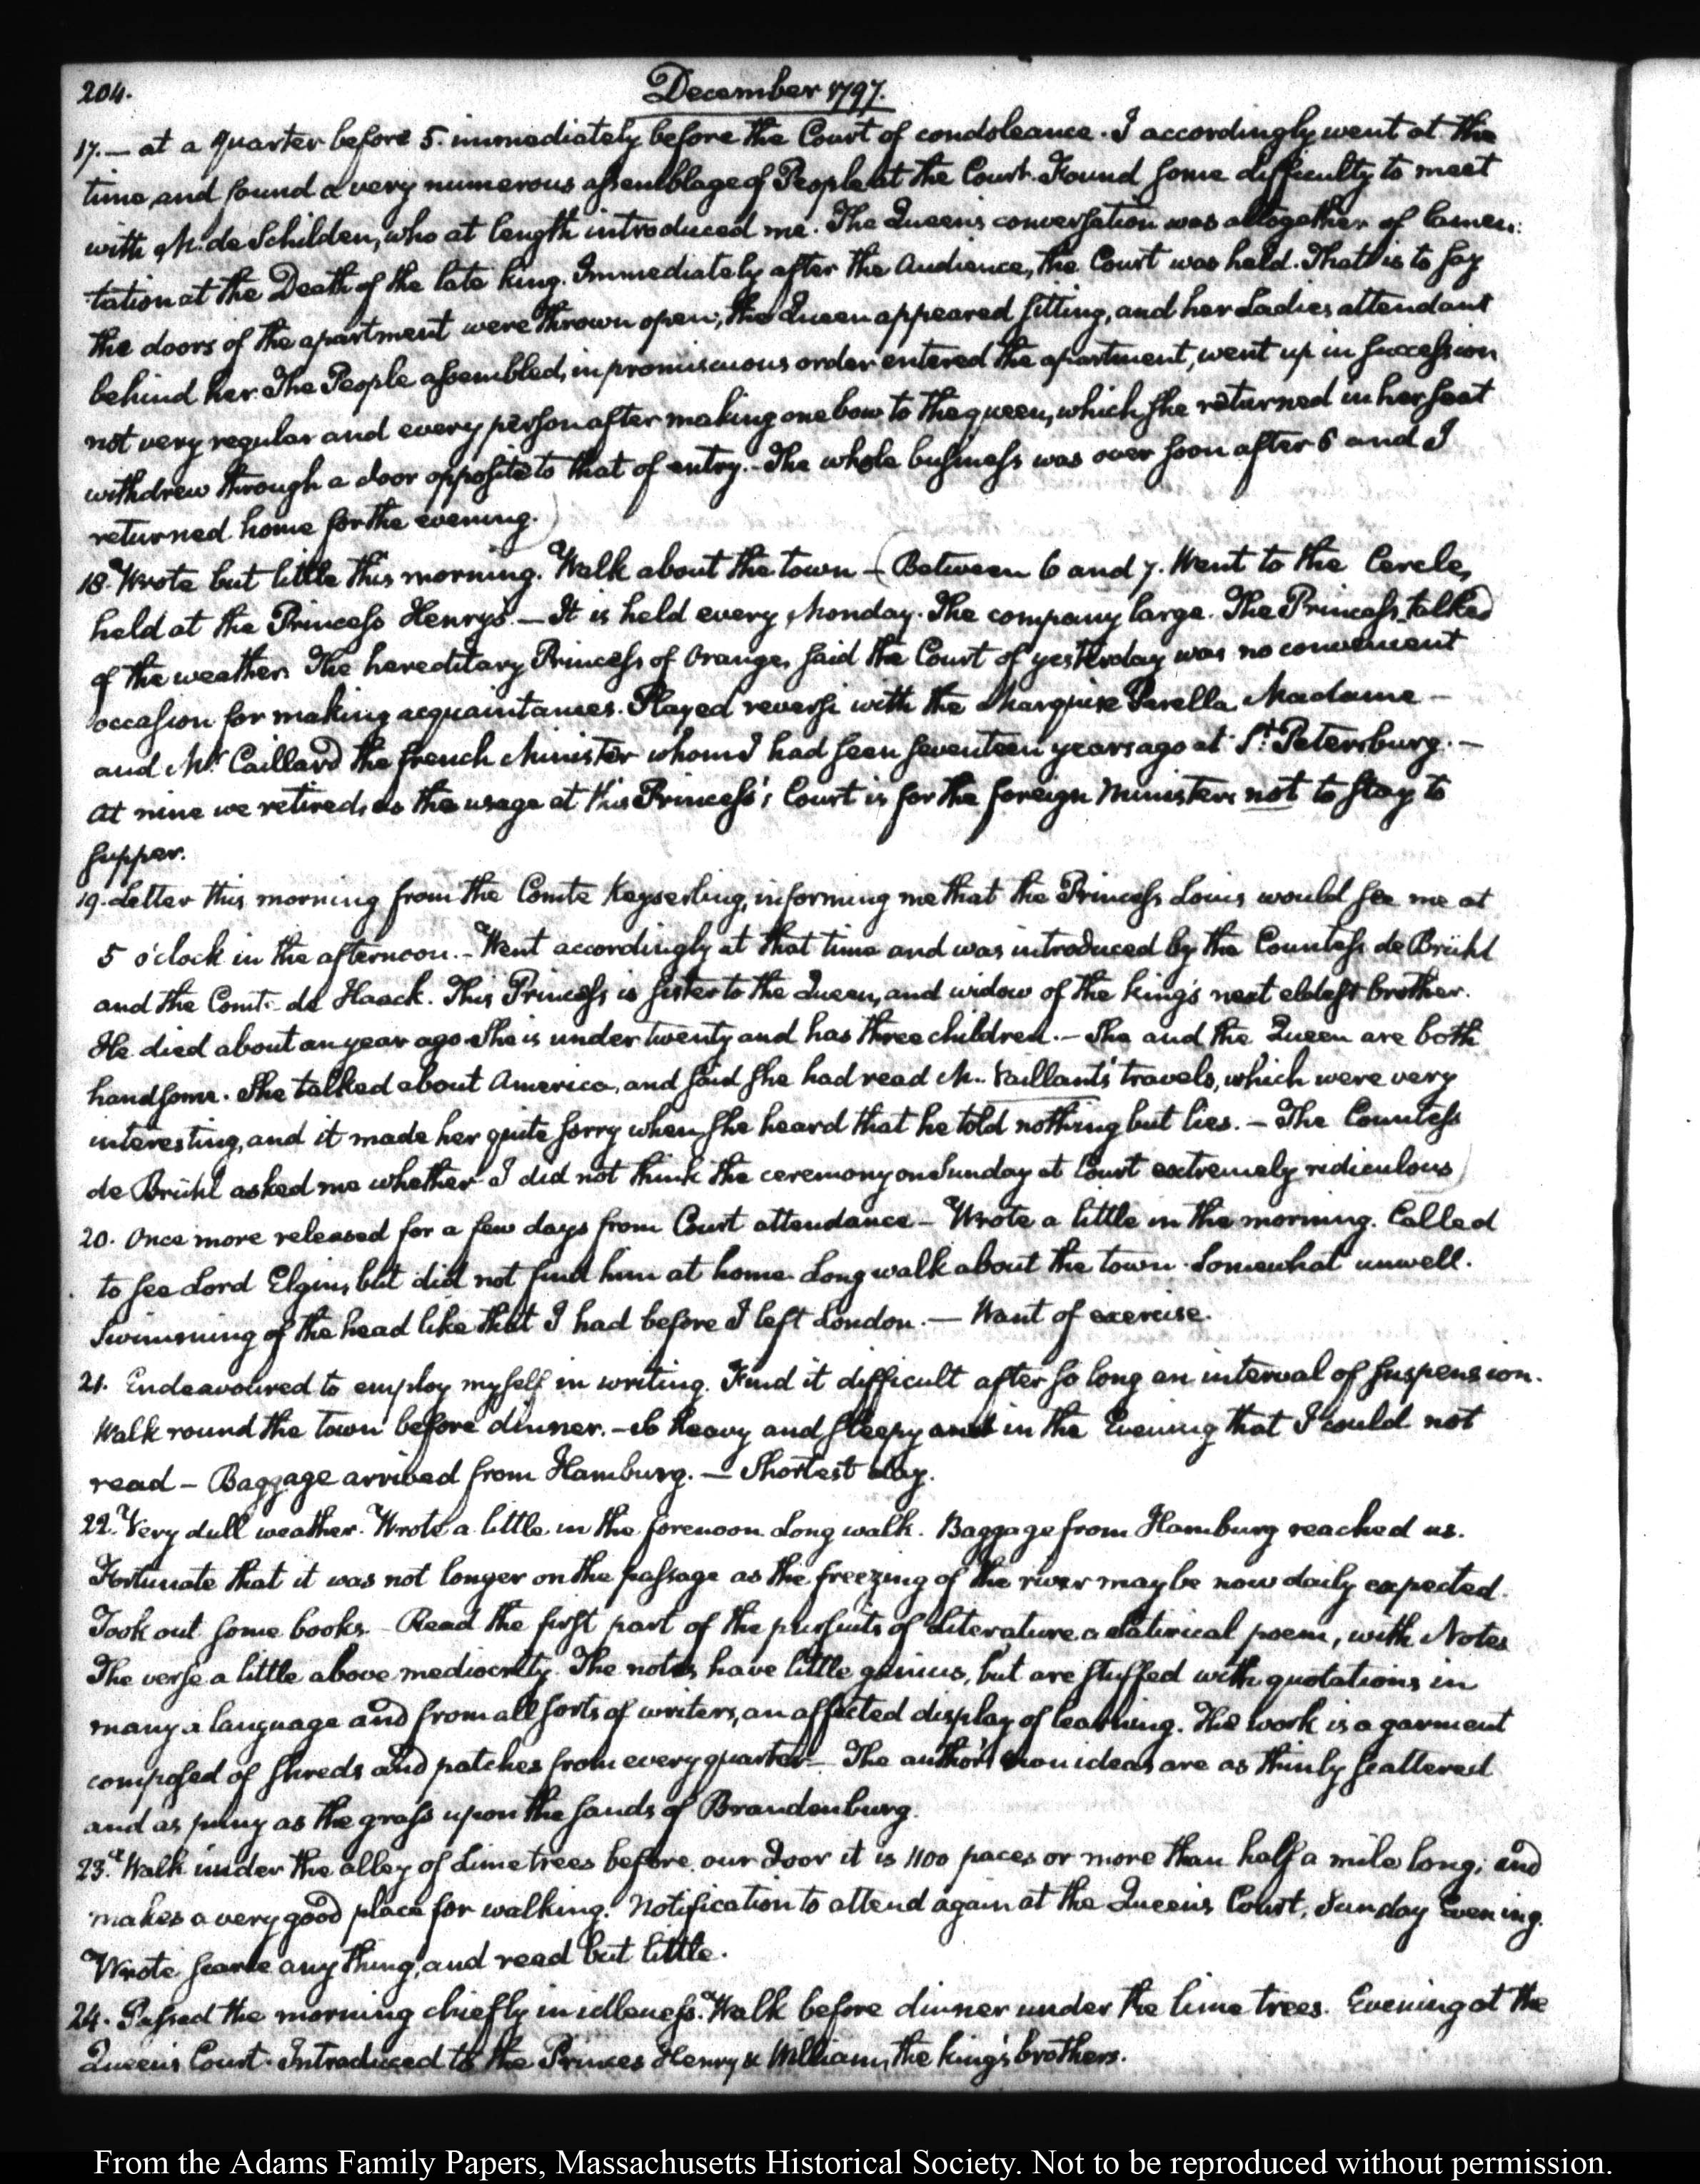 204.
December 1797.
17. — at a quarter before 5. immediately before the Court of condoleance. I accordingly went at the
time, and found a very numerous assemblage of People at the Court. Found some difficulty to meet
with M. de Schilden, who at length introduced me. The Queen's conversation was altogether of lamen:
tation at the Death of the late king. Immediately after the Audience, the Court was held. That is to say
the doors of the apartment were thrown open, the Queen appeared sitting, and her Ladies attendant
behind her. The People assembled, in promiscuous order entered the apartment, went up in succession
not very regular and every person after making one bow to the queen, which she returned in her seat
withdrew through a door opposite to that of entry. — The whole business was over soon after 6 and I
returned home for the evening.)
18. Wrote but little this morning. Walk about the town — (Between 6 and 7. Went to the Cercle,
held at the Princess Henry's. — It is held every Monday. The company large. The Princess talked
of the weather. The hereditary Princess of Orange, said the Court of yesterday was no convenient
occasion for making acquaintances. Played reversi with the Marquise Parella Madame —
and Mr. Caillard the french Minister whom I had seen seventeen years ago at St. Petersburg. —
At nine we retired, as the usage at this Princess's Court is for the foreign Ministers not to stay to
supper.
19. Letter this morning from the Comte Keyserling, informing me that the Princess Louis would see me at
5 o'clock in the afternoon. — Went accordingly at that time and was introduced by the Countess de Brühl
and the Comte de Haack. This Princess is sister to the Queen, and widow of the king's next eldest brother.
He died about an year ago. She is under twenty and has three children. — She and the Queen are both
handsome. She talked about America, and said she had read M. Vaillant's travels, which were very
interesting, and it made her quite sorry when she heard that he told nothing but lies. — The Countess
de Brühl asked me whether I did not think the ceremony on Sunday at Court extremely ridiculous)
20. Once more released for a few days from Court attendance — Wrote a little in the morning. Called
to see Lord Elgin, but did not find him at home. Long walk about the town. Somewhat unwell.
Swimming of the head like that I had before I left London. — Want of exercise.
21. Endeavoured to employ myself in writing. Find it difficult after so long an interval of suspension.
Walk round the town before dinner. — So heavy and sleepy in the Evening that I could not
read — Baggage arrived from Hamburg. — Shortest day.
22. Very dull weather. Wrote a little in the forenoon. Long walk. Baggage from Hamburg reached us.
Fortunate that it was not longer on the passage as the freezing of the river may be now daily expected.
Took out some books. — Read the first part of the pursuits of Literature a satirical poem, with Notes
The verse a little above mediocrity. The notes have little genius, but are stuffed with quotations in
many a language and from all sorts of writers, an affected display of learning. His work is a garment
composed of shreds and patches from every quarter — The author's own ideas are as thinly scattered
and as puny as the grass upon the sands of Brandenburg.
23. Walk under the alley of Lime trees before our door it is 1100 paces or more than half a mile long; and
makes a very good place for walking. Notification to attend again at the Queen's Court, Sunday Evening.
Wrote scarce any thing, and read but little.
24. Passed the morning chiefly in idleness. Walk before dinner under the lime trees. Evening at the
Queen's Court. Introduced to the Princes Henry & William, the king's brothers.
From the Adams Family Papers, Massachusetts Historical Society. Not to be reproduced without permission.